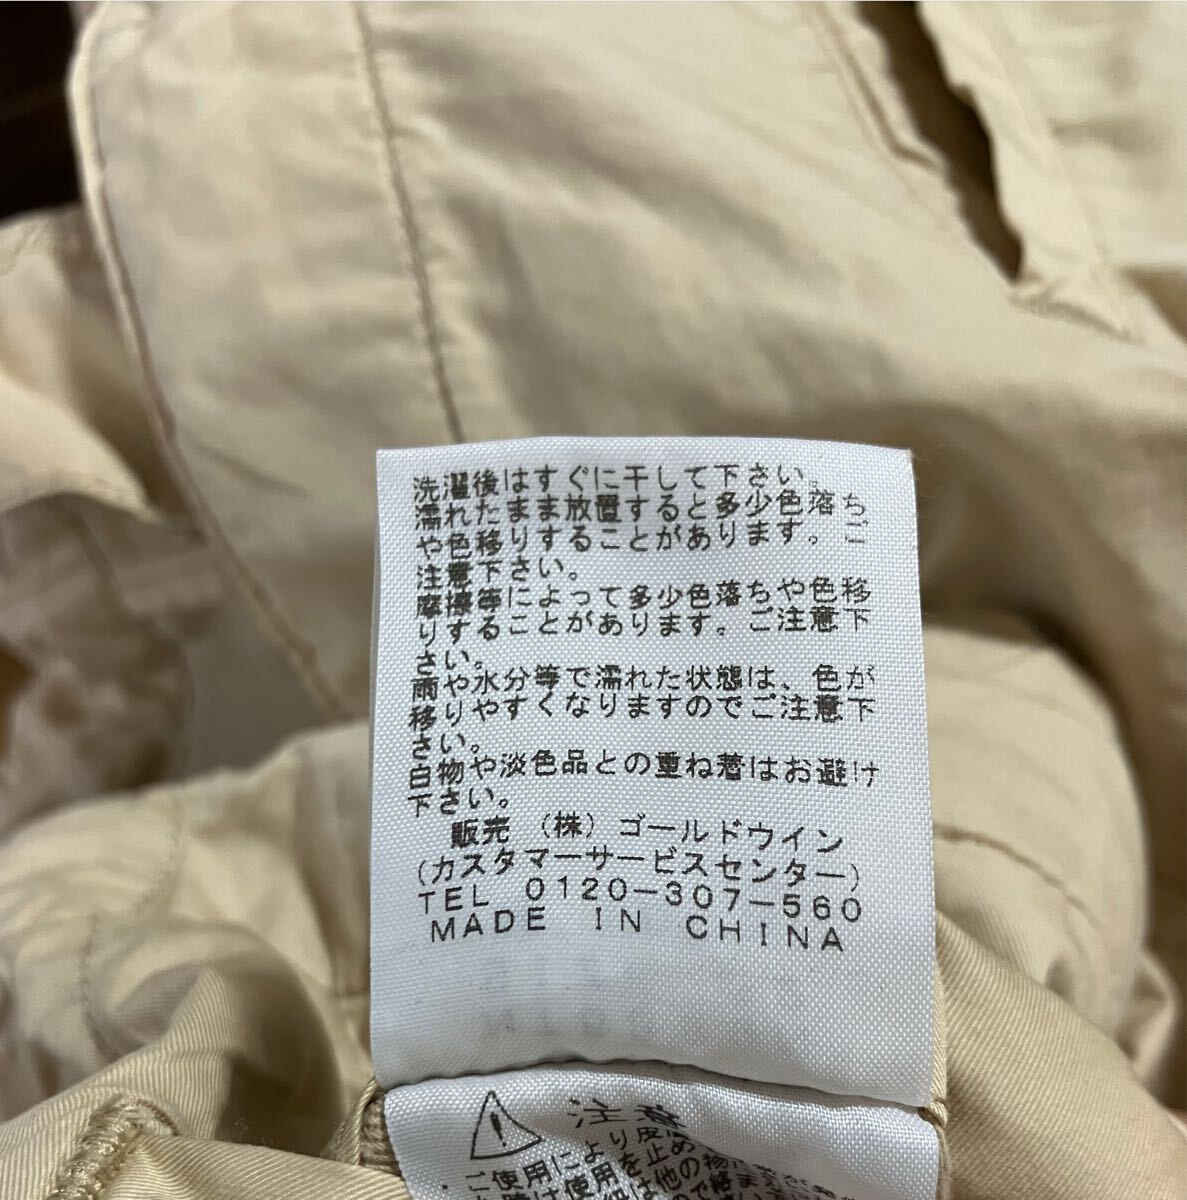 洗濯後はすぐに干して下さい。
濡れたまま放置すると多少色落ち
や色移りすることがあります。ご
注意下さい。
摩擦等によって多少色落ちや色移
りすることがあります。ご注意下
さい。
雨や水分等で濡れた状態は、色が
移りやすくなりますのでご注意下
さい。
白物や淡色品との重ね着はお避け
下さい。
販売 (株) ゴールドウイン
(カスタマーサービスセンター)
TEL 0120-307-560
MADE IN CHINA
注意
ご使用により皮